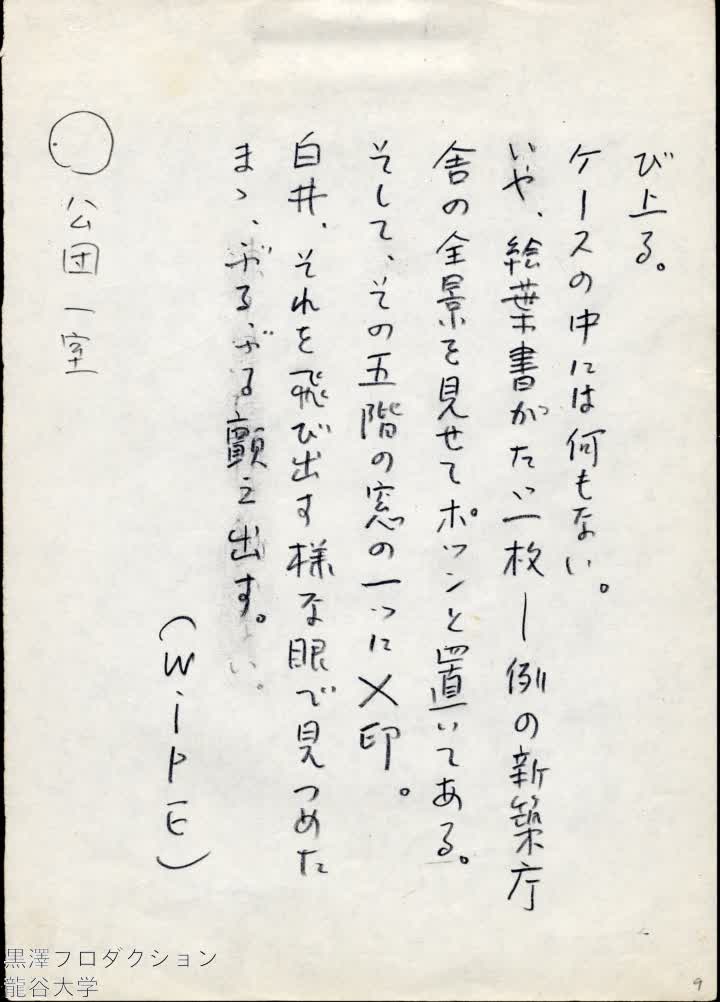 び上る。
ケースの中には何もない。
いや、絵葉書がたゞ一枚ー例の新築庁
舎の全景を見せてポツンと置いてある。
そして、その五階の窓の一つに×印。
白井、それを飛び出す様な眼で見つめた
まゝ、ぶるぶる顫え出す。
(WIPE)
○ 公団一室
黒澤プロダクション
龍谷大学
9